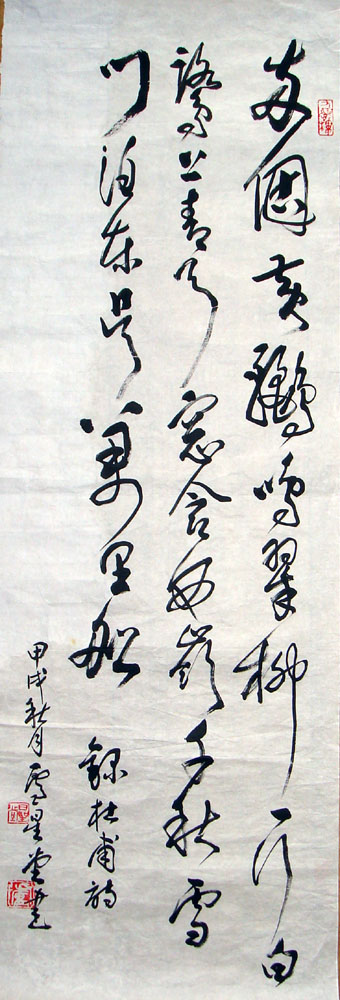 兩個黃鸝鳴翠柳一行白
鷺上青天窓含西嶺千秋雪
門泊東吳萬里船
錄杜甫詩
甲戌秋月雪星堂